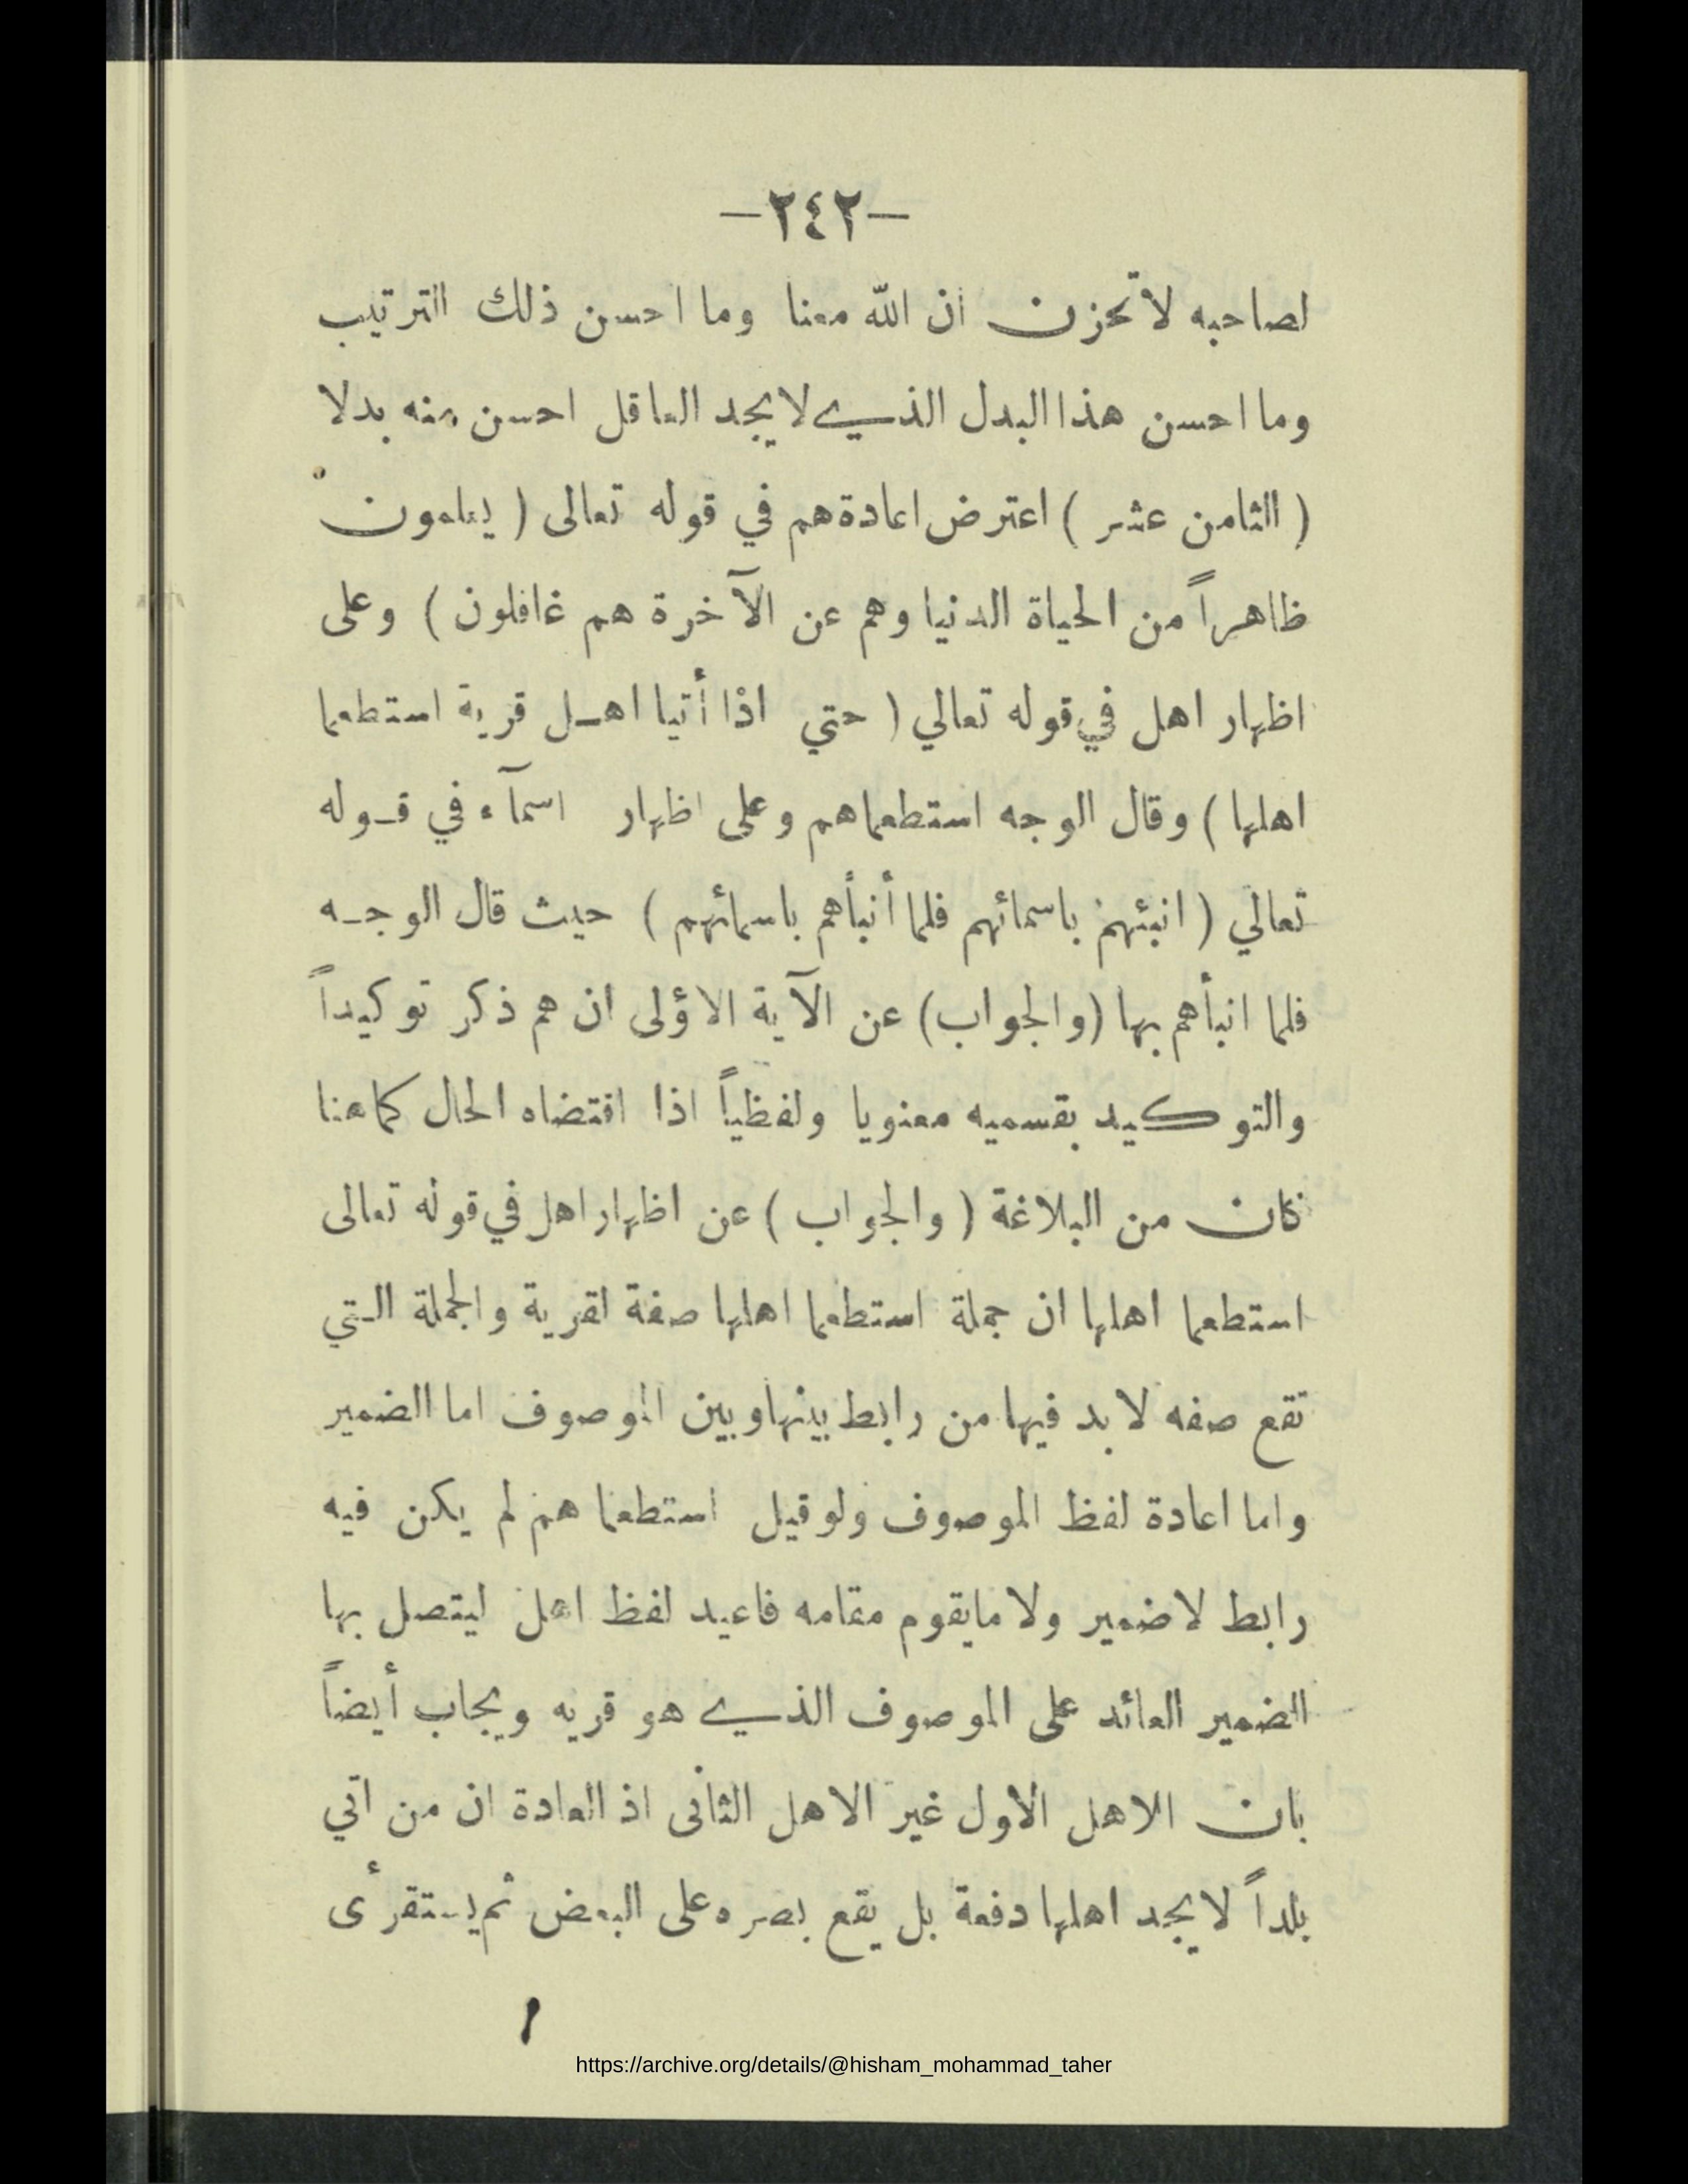 —٢٤٢—
لصاحبه لا تحزن ان الله معنا وما احسن ذلك الترتيب
وما احسن هذا البدل الذي لا يجد العاقل احسن منه بدلا
( الثامن عشر ) اعترض اعادة هم في قوله تعالى ( يعلمون
ظاهراً من الحياة الدنيا وهم عن الآخرة هم غافلون ) وعلى
اظهار اهل في قوله تعالي ( حتي اذا أتيا اهل قرية استطعما
اهلها ) وقال الوجه استطعماهم وعلى اظهار اسمآء في قوله
تعالي ( انبئهم باسمائهم فلما أنبأهم باسمائهم ) حيث قال الوجه
فلما انبأهم بها (والجواب) عن الآية الاؤلى ان هم ذكر توكيداً
والتوكيد بقسميه معنويا ولفظياً اذا اقتضاه الحال كما هنا
كان من البلاغة ( والجواب ) عن اظهار اهل في قوله تعالى
استطعما اهلها ان جملة استطعما اهلها صفة لقرية والجملة التي
تقع صفه لا بد فيها من رابط بينها وبين الموصوف اما الضمير
واما اعادة لفظ الموصوف ولو قيل استطعما هم لم يكن فيه
رابط لا ضمير ولا ما يقوم مقامه فاعيد لفظ اهل ليتصل بها
الضمير العائد على الموصوف الذي هو قريه ويجاب أيضاً
بان الاهل الاول غير الاهل الثانى اذ العادة ان من اتي
بلداً لا يجد اهلها دفعة بل يقع بصره على البعض ثم يستقرأى
https://archive.org/details/@hisham_mohammad_taher